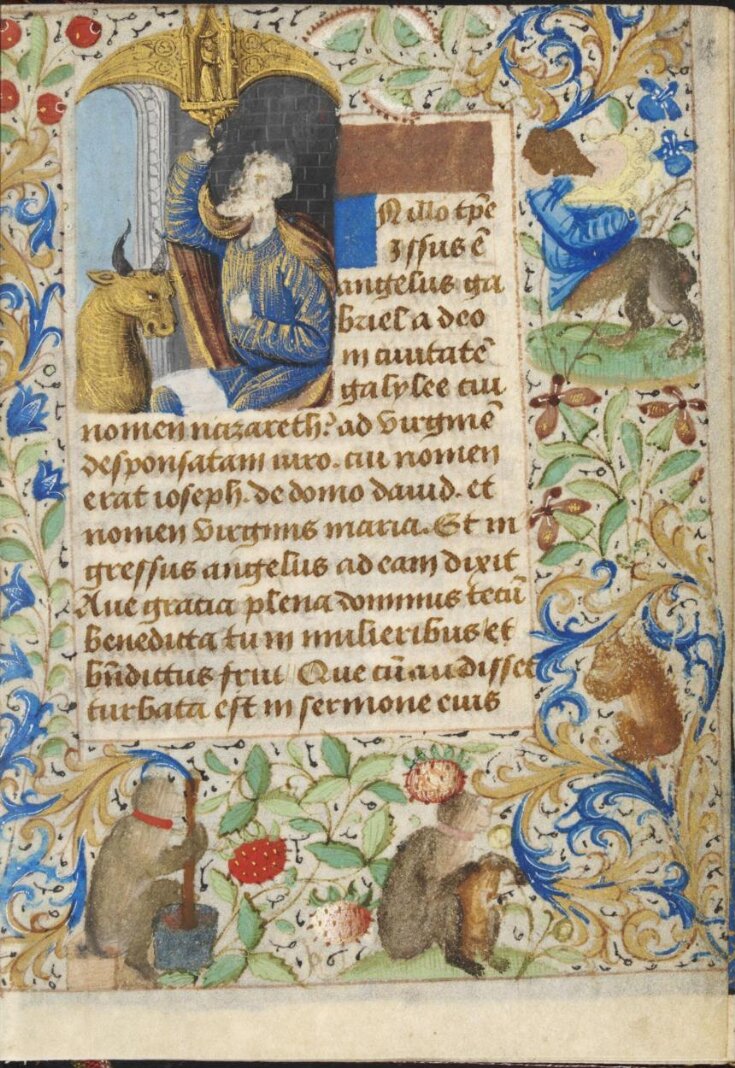 N illo tp̄e
issus ē
angelus ga
briel a deo
in ciuitatē
galylee cui
nomen nazareth: ad virginē
desponsatam uiro. cui nomen
erat ioseph. de domo dauid. et
nomen virginis maria. Et in
gressus angelus ad eam dixit
Aue gracia plena dominus tecū
benedicta tu in mulieribus et
bn̄dictus fruc Que cū audisset
turbata est in sermone euis